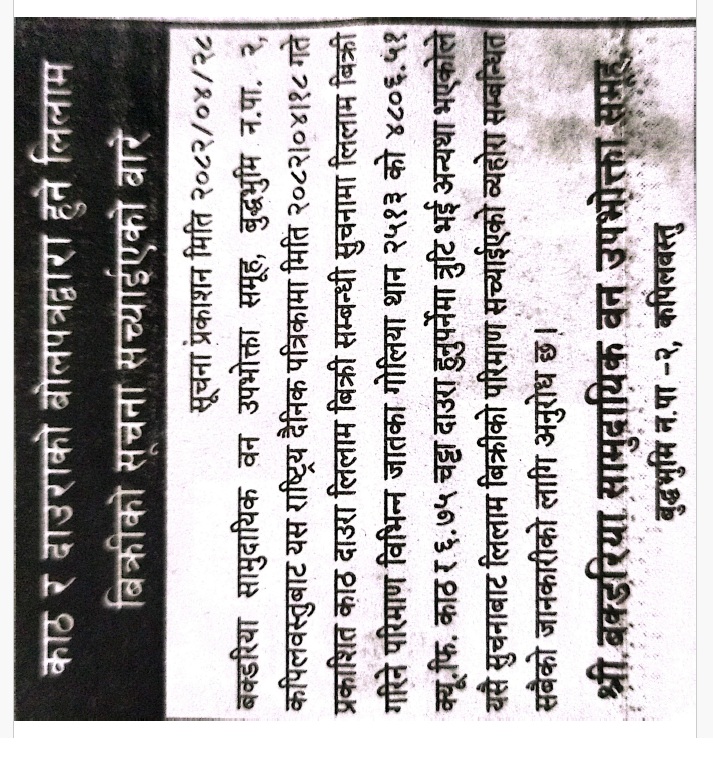 काठ र दाउराको बोलपत्रद्वारा हुने लिलाम
बिक्रीको सूचना सच्याईएको बारे
सूचना प्रकाशन मिति २०८२/०४/२८
बक्डरिया सामुदायिक वन उपभोक्ता समूह, बुद्धभुमि न.पा. २,
कपिलवस्तुबाट यस राष्ट्रिय दैनिक पत्रिकामा मिति २०८२।०४।१८ गते
प्रकाशित काठ दाउरा लिलाम बिक्री सम्बन्धी सुचनामा लिलाम बिक्री
गरिने परिमाण विभिन्न जातका गोलिया थान २५१३ को ४८०६.५१
क्यू.फि. काठ र ६.७५ चट्टा दाउरा हुनुपर्नेमा त्रुटि भई अन्यथा भएकोले
यसै सुचनाबाट लिलाम बिक्रीको परिमाण सच्याईएको व्यहोरा सम्बन्धित
सबैको जानकारीको लागि अनुरोध छ।
श्री बक्डरिया सामुदायिक वन उपभोक्ता समूह
बुद्धभुमि न.पा -२, कपिलवस्तु